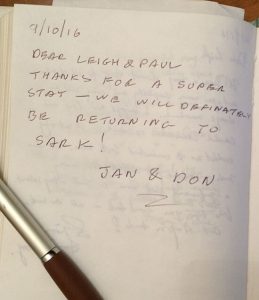 9/10/16
DEAR LEIGH & PAUL
THANKS FOR A SUPER
STAT – WE WILL DEFINATELY
BE RETURNING TO
SARK!
JAN & DON